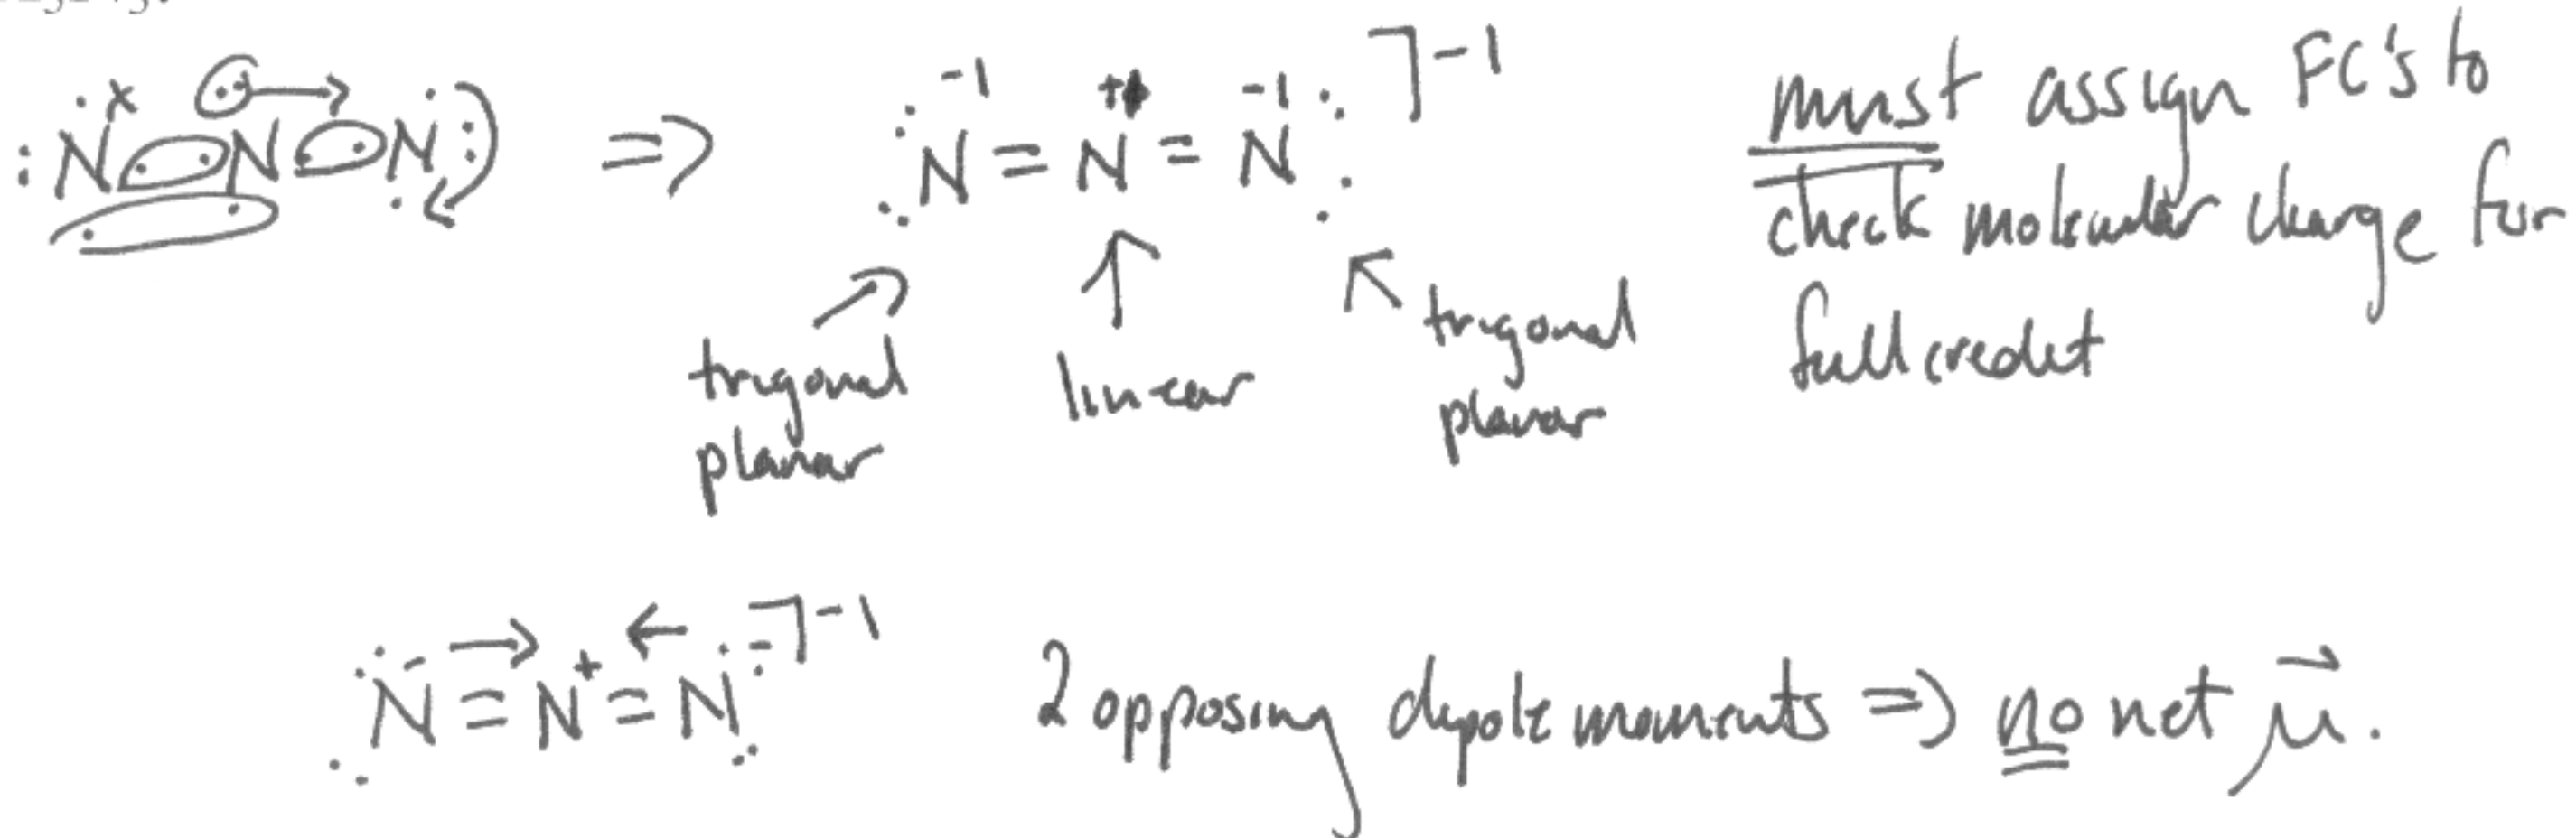 :N N N:
⇒
N = N = N ]⁻¹
-1 + -1
must assign FC's to
check molecular charge for
full credit
trigonal
planar
linear
trigonal
planar
N = N⁺ = N ]⁻¹
2 opposing dipole moments ⇒ no net μ⃗.